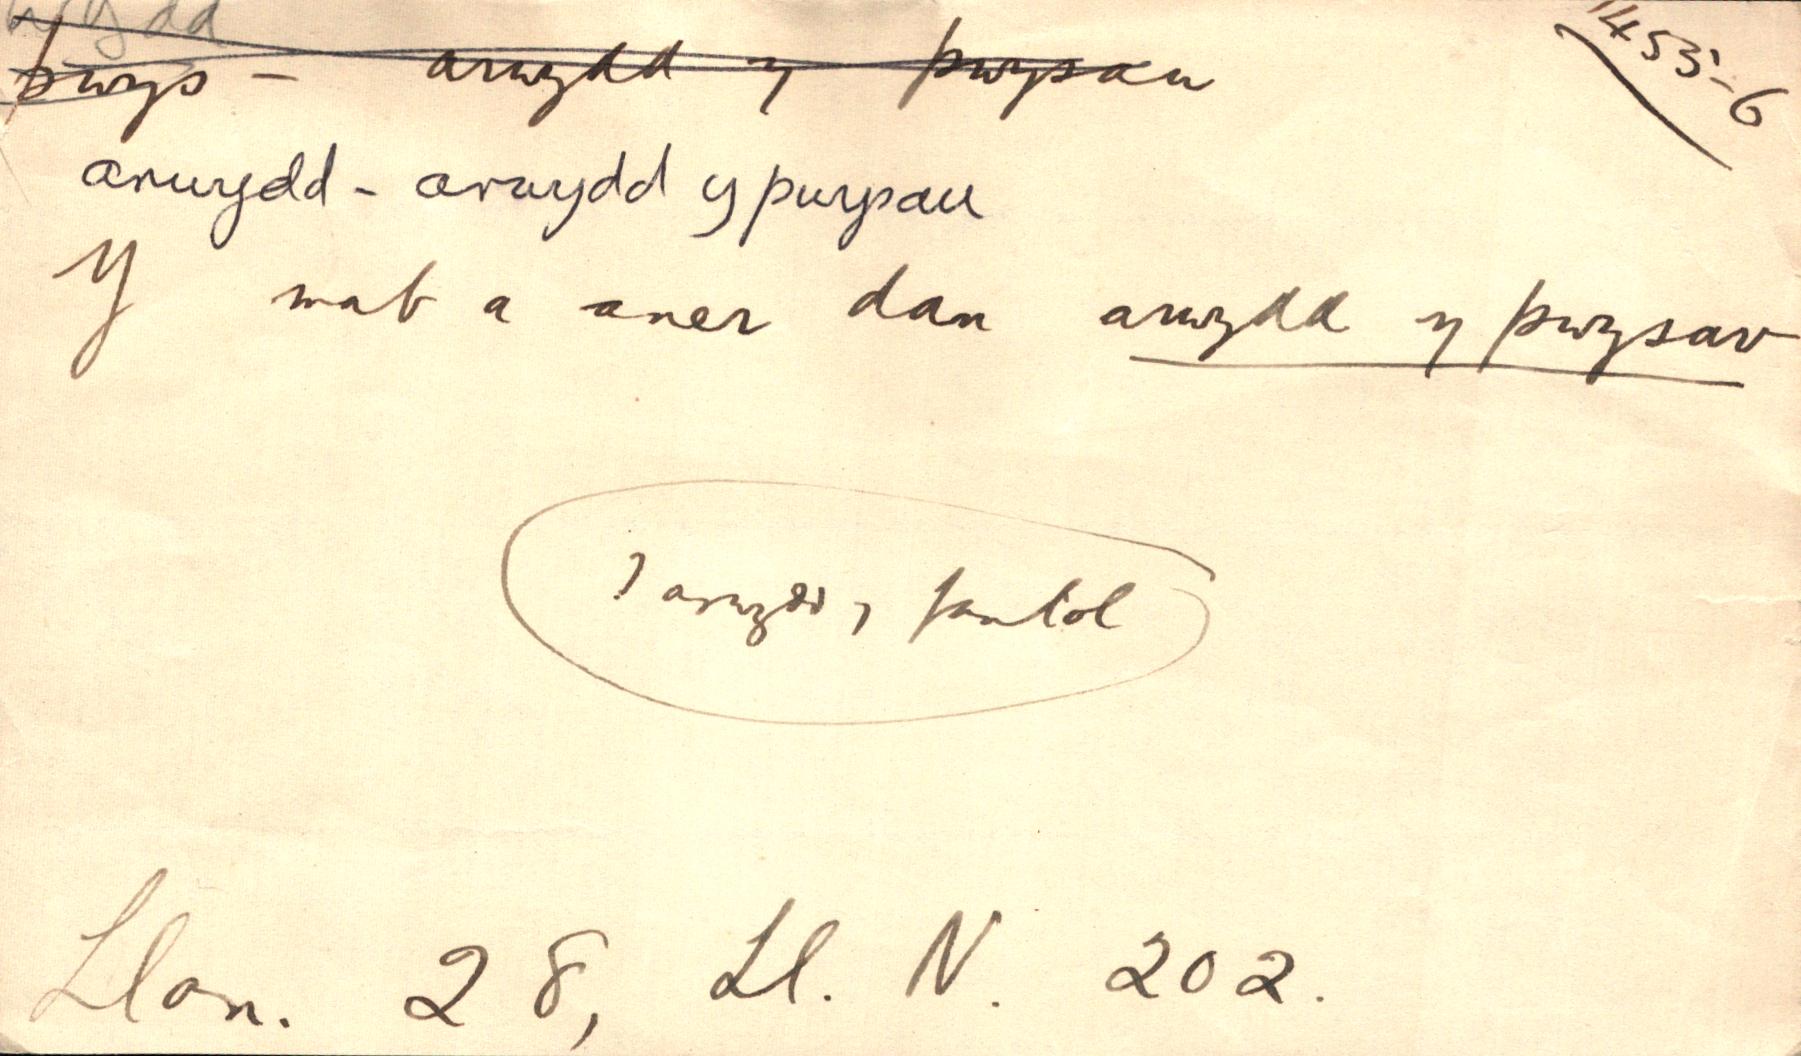 wydd
pwys - arwydd y pwysau
1455-6
arwydd - arwydd y pwysau
Y mab a aner dan arwydd y pwysav
? arwydd y fantol
Llan. 28, Ll. N. 202.